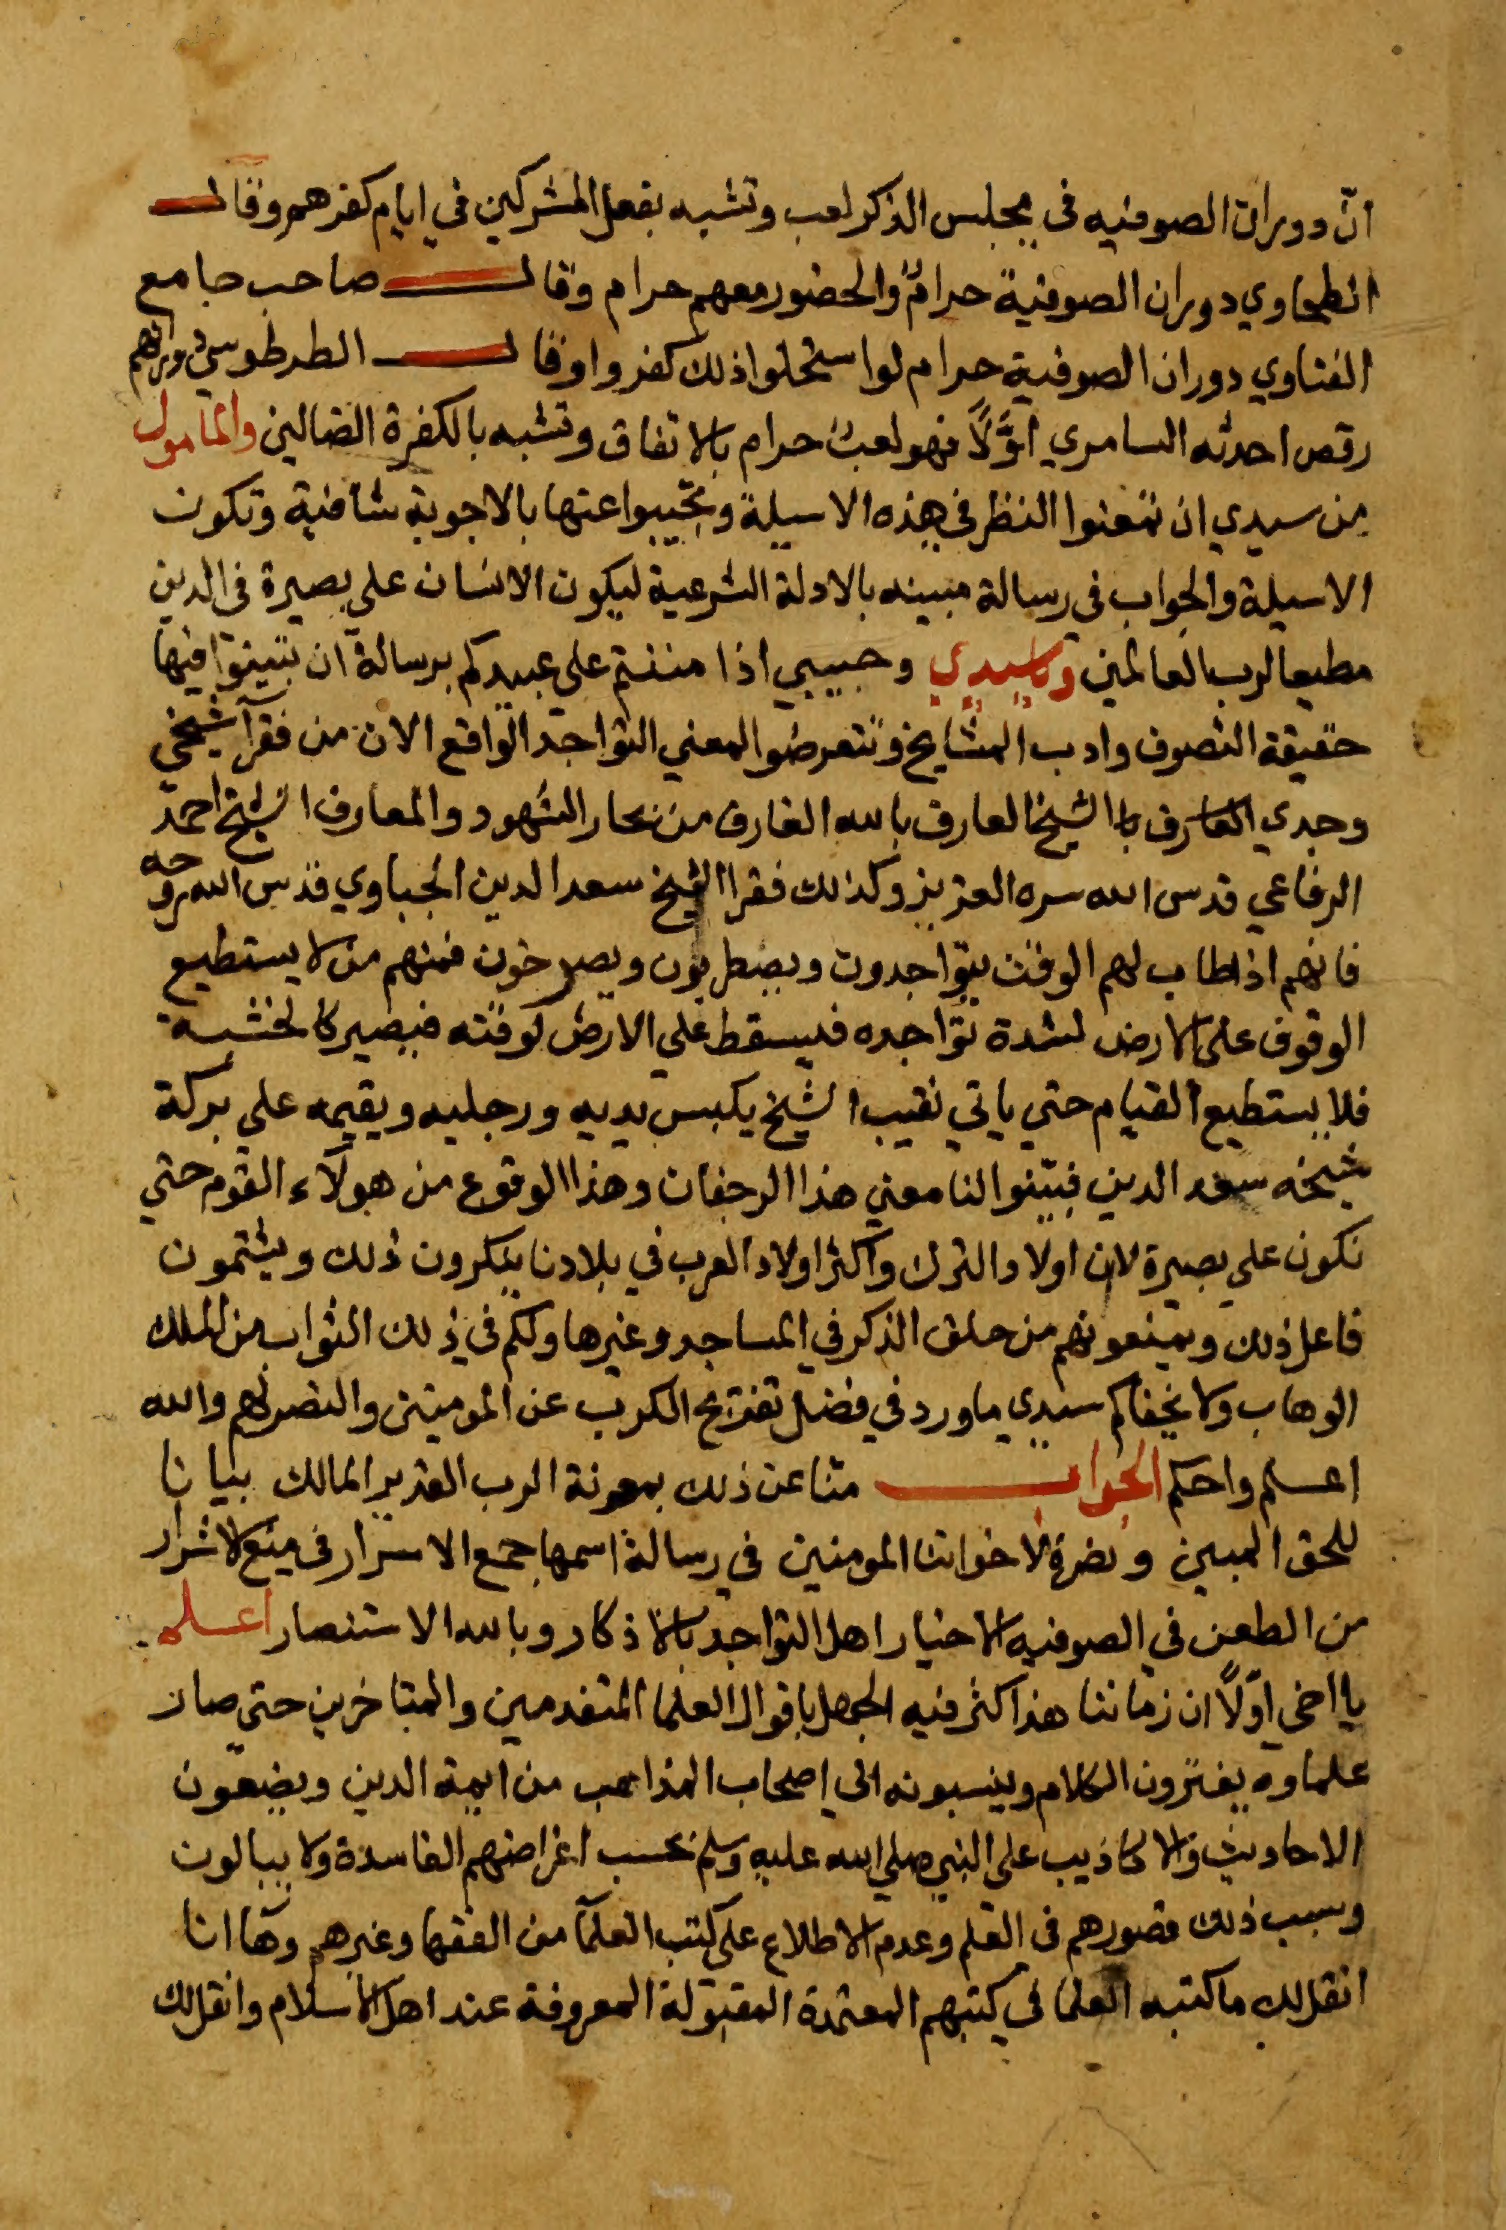 انّ دوران الصوفيه في مجلس الذكر لعب وتشبه بفعل المشركين في ايام كفرهم وقال
الطحاوي دوران الصوفية حرامٌ والحضور معهم حرام وقال صاحب جامع
الفتاوي دوران الصوفية حرام لو استحلوا ذلك كفروا وقال الطرطوسي دورانهم
رقص احدثه السامري اوّلاً فهو لعبٌ حرام بالاتفاق وتشبه بالكفرة الضالين والمامول
من سيدي ان تمعنوا النظر في هذه الاسيلة وتجيبوا عنها بالاجوبة شافية وتكون
الاسيلة والجواب في رسالة مبينه بالادلة الشرعية ليكون الانسان علي بصيرة في الدين
مطيعا لرب العالمين وياسيدي وحبيبي اذا مننتم علي عبيدكم برسالة ان تبينوا فيها
حقيقة التصوف وادب المشايخ وتتعرضوا لمعني التواجد الواقع الان من فقرآ شيخي
وجدي الشيخ العارف بالله الغارف من بحار الشهود والمعارف الشيخ احمد
الرفاعي قدس الله سره العزيز وكذلك فقرا الشيخ سعد الدين الجباوي قدس الله روحه
فانهم اذا طاب لهم الوقت يتواجدون ويضطربون ويصرخون فمنهم من لا يستطيع
الوقوف علي الارض لشدة تواجده فيسقط علي الارض لوقته فيصير كالخشبة
فلا يستطيع القيام حتي ياتي نقيب الشيخ يكبس يديه ورجليه ويقيمه علي بركة
شيخه سعد الدين فبيّنوا لنا معني هذا الرجفان وهذا الوقوع من هولآء القوم حتي
نكون علي بصيرة لان اولاد الترك واكثر اولاد العرب في بلادنا ينكرون ذلك ويشتمون
فاعل ذلك ويمنعونهم من حلق الذكر في المساجد وغيرها ولكم في ذلك الثواب من الملك
الوهاب ولا يخفاكم سيدي ما ورد في فضل تفريج الكرب عن المومنين والنصر لهم والله
اعلم واحكم الجواب منا عن ذلك بمعونة الرب القدير المالك بيانا
للحق المبين ونصرة لاخواننا المومنين في رسالة اسمها جمع الاسرار في منع الاشرار
من الطعن في الصوفيه الاخيار اهل التواجد بالاذكار وبالله الاستنصار اعلم
يا اخي اوّلاً ان زماننا هذا كثر فيه الجهل باقوال العلما المتقدمين والمتاخرين حتي صار
علماوه يفترون الكلام وينسبونه الي اصحاب المذاهب من ايمة الدين ويضعون
الاحاديث والاكاذيب علي النبي صلي الله عليه وسلم بحسب اغراضهم الفاسدة ولا يبالون
وسبب ذلك قصورهم في العلم وعدم الاطلاع علي كتب العلمآ من الفقها وغيرهم وها انا
انقل لك ما كتبه العلما في كتبهم المعتمدة المقبولة المعروفة عند اهل الاسلام وانقل لك